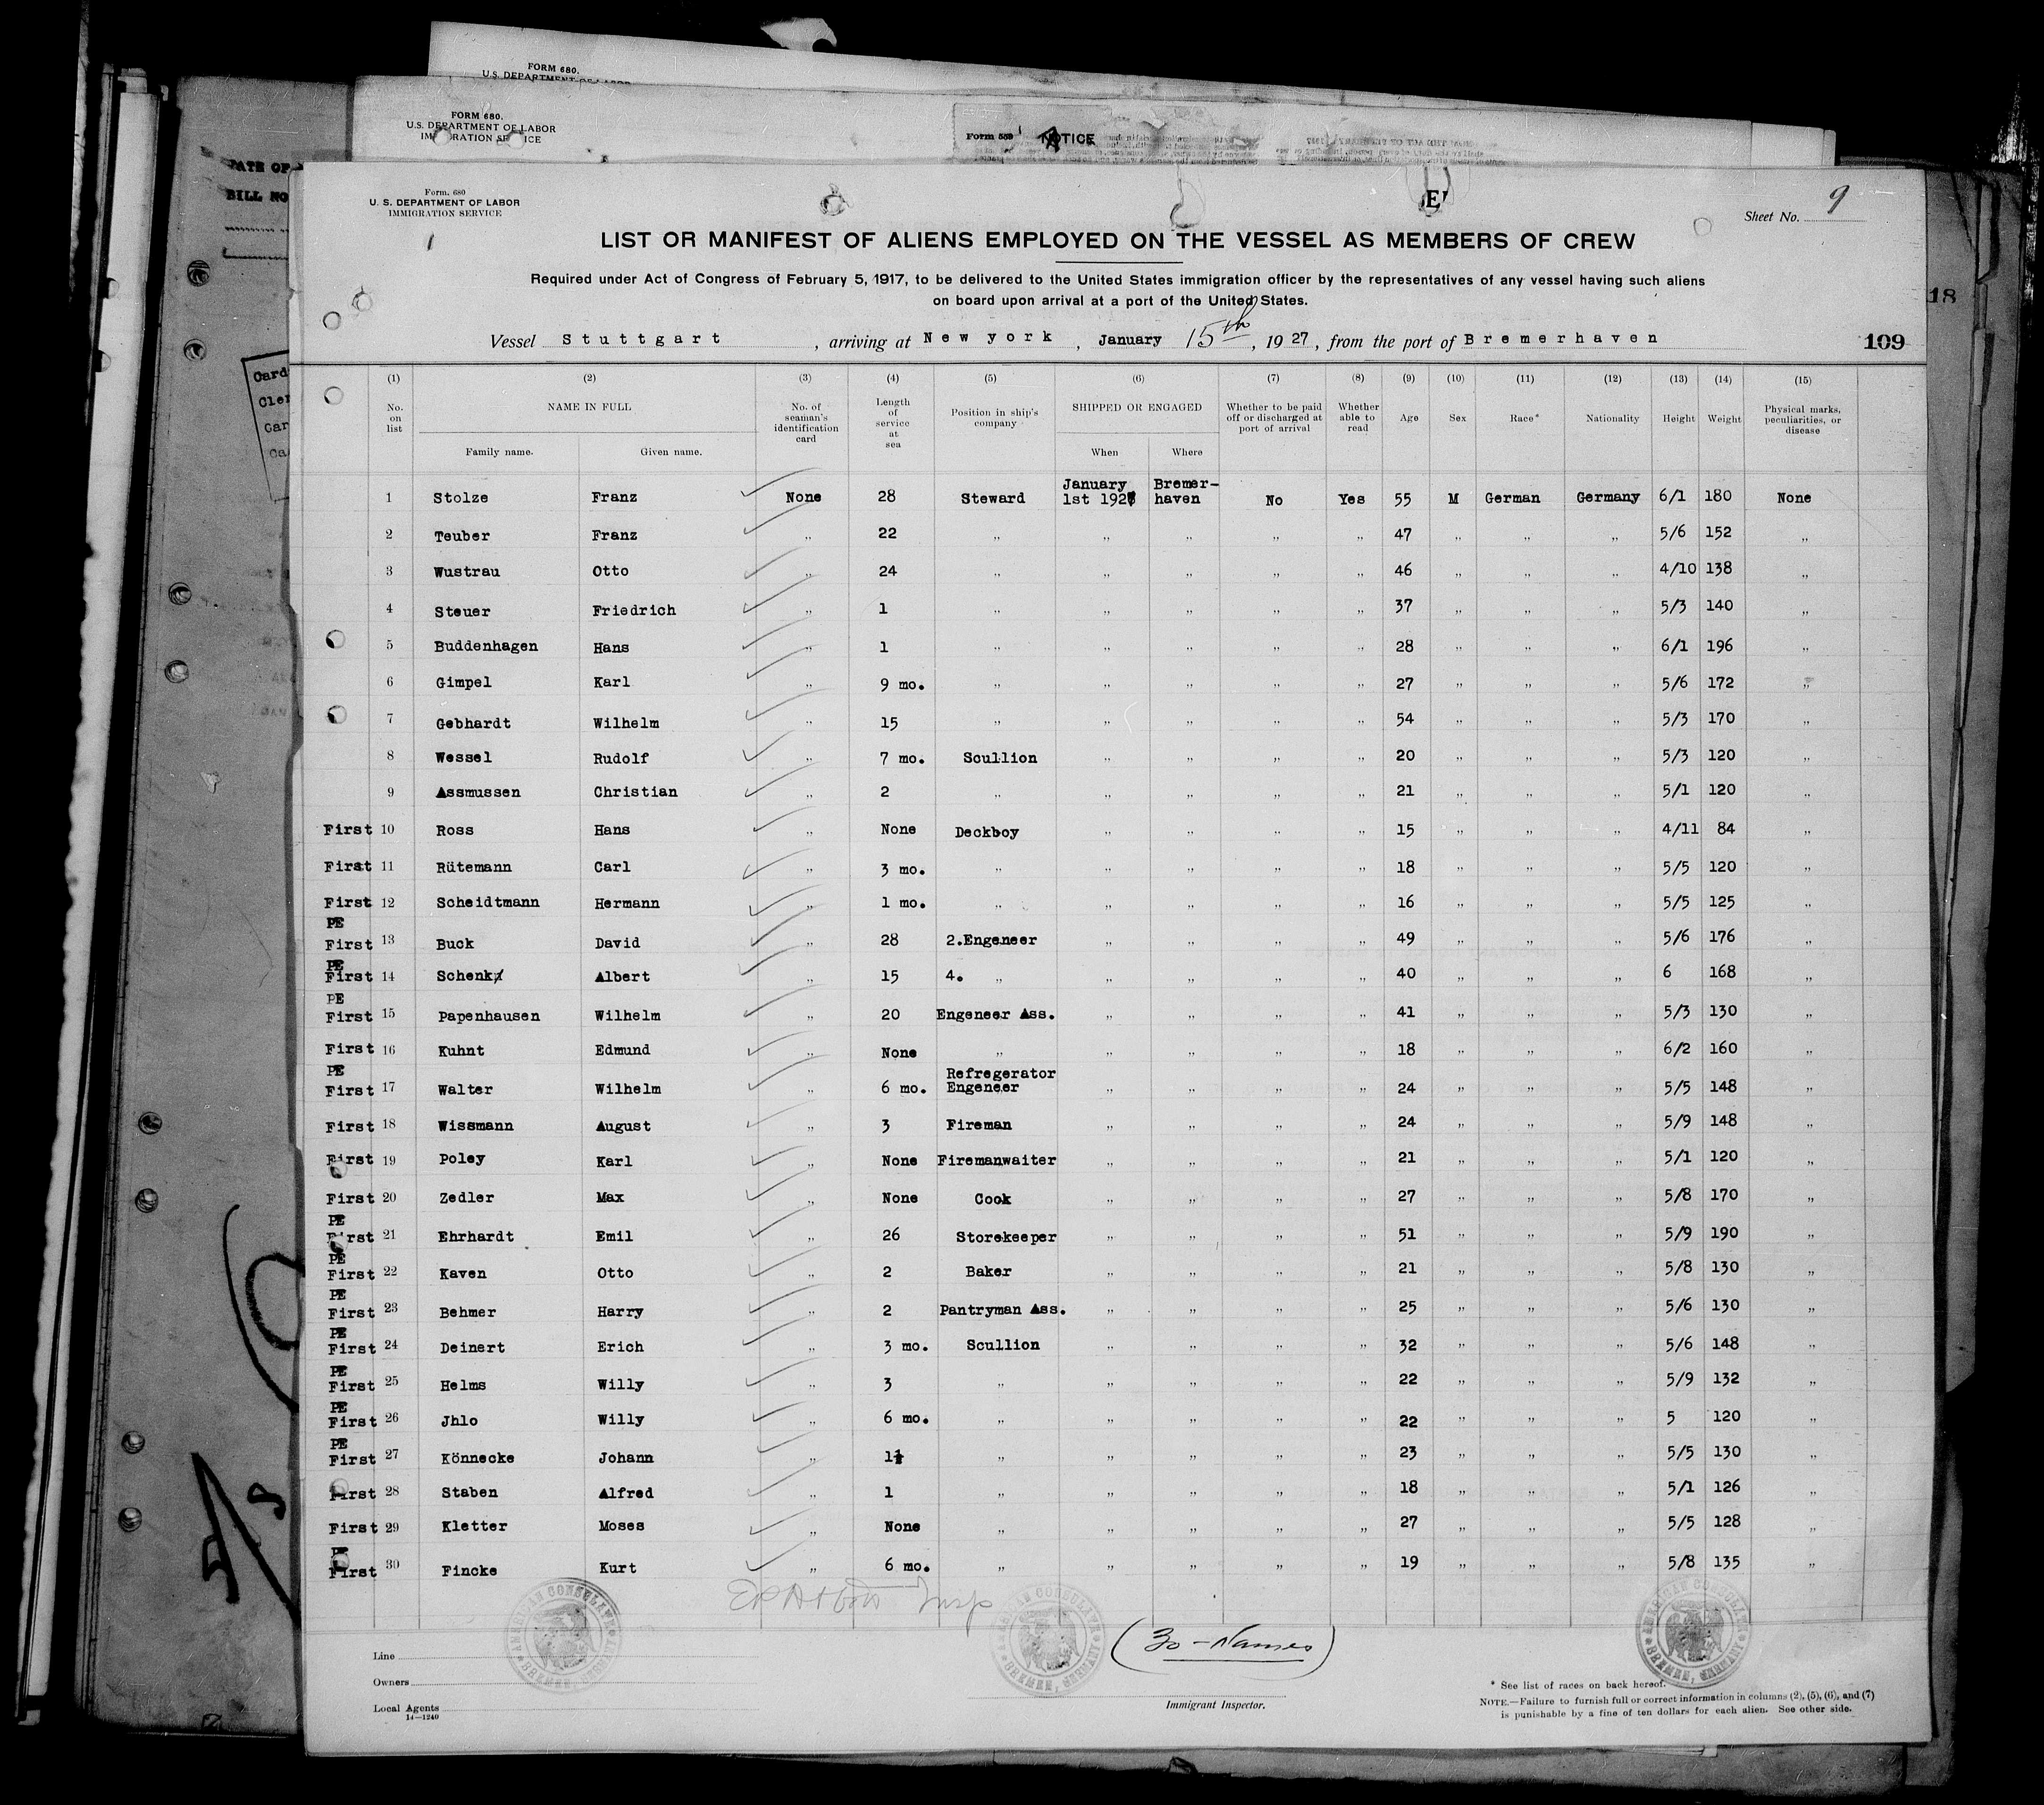 FORM 680.
U.S. DEPARTMENT OF LABOR
FORM 680.
U.S. DEPARTMENT OF LABOR
IMMIGRATION SERVICE
Form 559
NOTICE
DATE OF
BILL NO
18
Form. 680
U. S. DEPARTMENT OF LABOR
IMMIGRATION SERVICE
Sheet No. 9
LIST OR MANIFEST OF ALIENS EMPLOYED ON THE VESSEL AS MEMBERS OF CREW
Required under Act of Congress of February 5, 1917, to be delivered to the United States immigration officer by the representatives of any vessel having such aliens
on board upon arrival at a port of the United States.
Vessel Stuttgart, arriving at New york, January 15th, 1927, from the port of Bremerhaven 109
(1) (2) (3) (4) (5) (6) (7) (8) (9) (10) (11) (12) (13) (14) (15)
No. on list NAME IN FULL No. of seaman's identification card Length of service at sea Position in ship's company SHIPPED OR ENGAGED Whether to be paid off or discharged at port of arrival Whether able to read Age Sex Race* Nationality Height Weight Physical marks, peculiarities, or disease
Family name. Given name. When Where
1 Stolze Franz None 28 Steward January 1st 1927 Bremer-haven No Yes 55 M German Germany 6/1 180 None
2 Teuber Franz " 22 " " " " " 47 " " " 5/6 152 "
3 Wustrau Otto " 24 " " " " " 46 " " " 4/10 138 "
4 Steuer Friedrich " 1 " " " " " 37 " " " 5/3 140 "
5 Buddenhagen Hans " 1 " " " " " 28 " " " 6/1 196 "
6 Gimpel Karl " 9 mo. " " " " " 27 " " " 5/6 172 "
7 Gebhardt Wilhelm " 15 " " " " " 54 " " " 5/3 170 "
8 Wessel Rudolf " 7 mo. Scullion " " " " 20 " " " 5/3 120 "
9 Assmussen Christian " 2 " " " " " 21 " " " 5/1 120 "
First 10 Ross Hans " None Deckboy " " " " 15 " " " 4/11 84 "
First 11 Rütemann Carl " 3 mo. " " " " " 18 " " " 5/5 120 "
First 12 Scheidtmann Hermann " 1 mo. " " " " " 16 " " " 5/5 125 "
PE
First 13 Buck David " 28 2.Engeneer " " " " 49 " " " 5/6 176 "
PE
First 14 Schenk Albert " 15 4. " " " " " 40 " " " 6 168 "
PE
First 15 Papenhausen Wilhelm " 20 Engeneer Ass. " " " " 41 " " " 5/3 130 "
First 16 Kuhnt Edmund " None " " " " " 18 " " " 6/2 160 "
PE
First 17 Walter Wilhelm " 6 mo. Refregerator Engeneer " " " " 24 " " " 5/5 148 "
First 18 Wissmann August " 3 Fireman " " " " 24 " " " 5/9 148 "
First 19 Poley Karl " None Firemanwaiter " " " " 21 " " " 5/1 120 "
First 20 Zedler Max " None Cook " " " " 27 " " " 5/8 170 "
PE
First 21 Ehrhardt Emil " 26 Storekeeper " " " " 51 " " " 5/9 190 "
PE
First 22 Kaven Otto " 2 Baker " " " " 21 " " " 5/8 130 "
PE
First 23 Behmer Harry " 2 Pantryman Ass. " " " " 25 " " " 5/6 130 "
PE
First 24 Deinert Erich " 3 mo. Scullion " " " " 32 " " " 5/6 148 "
PE
First 25 Helms Willy " 3 " " " " " 22 " " " 5/9 132 "
PE
First 26 Jhlo Willy " 6 mo. " " " " " 22 " " " 5 120 "
PE
First 27 Könnecke Johann " 1½ " " " " " 23 " " " 5/5 130 "
First 28 Staben Alfred " 1 " " " " " 18 " " " 5/1 126 "
First 29 Kletter Moses " None " " " " " 27 " " " 5/5 128 "
PE
First 30 Fincke Kurt " 6 mo. " " " " " 19 " " " 5/8 135 "
Insp
AMERICAN CONSULATE BREMEN, GERMANY
AMERICAN CONSULATE BREMEN, GERMANY
AMERICAN CONSULATE BREMEN, GERMANY
(30 - Names)
Line
Owners
Local Agents
14—1240
Immigrant Inspector.
* See list of races on back hereof.
NOTE.—Failure to furnish full or correct information in columns (2), (5), (6), and (7)
is punishable by a fine of ten dollars for each alien. See other side.